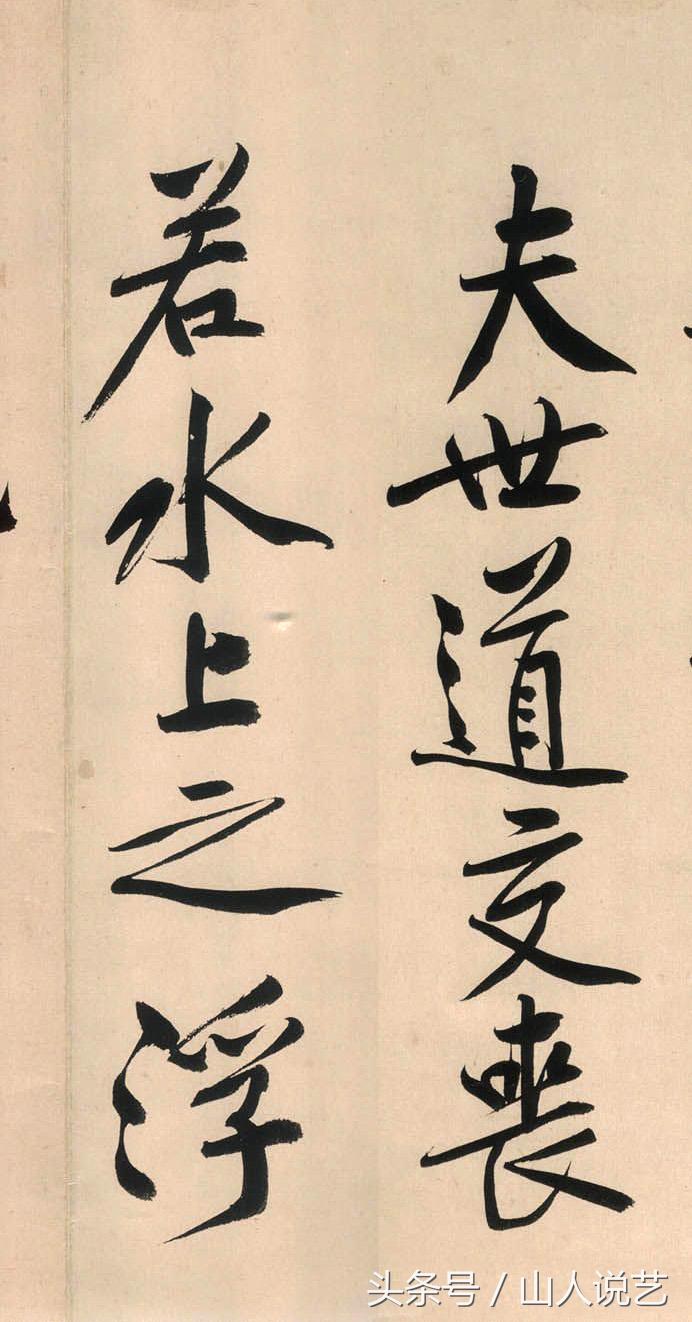 夫世道交喪
若水上之浮
头条号 / 山人说艺